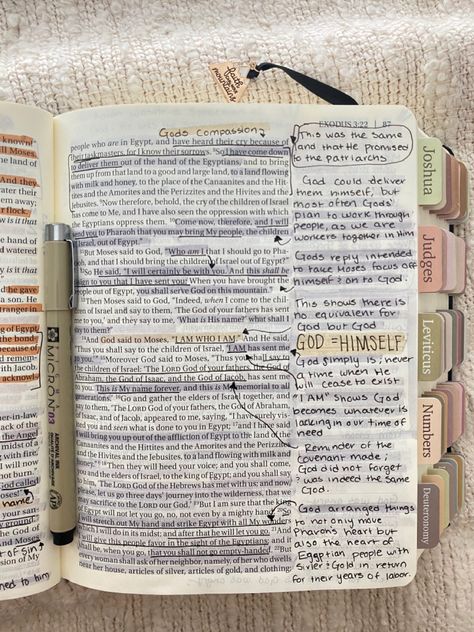 faith
can
move
mountains
EXODUS 3:22 | 87
Gods compassion
people who are in Egypt, and have heard their cry because of
their taskmasters, for I know their sorrows. 8So I have come down
to deliver them out of the hand of the Egyptians, and to bring
them up from that land to a good and large land, to a land flowing
with milk and honey, to the place of the Canaanites and the Hit-
tites and the Amorites and the Perizzites and the Hivites and the
Jebusites. 9Now therefore, behold, the cry of the children of Israel
has come to Me, and I have also seen the oppression with which
the Egyptians oppress them. 10Come now, therefore, and I will
send you to Pharaoh that you may bring My people, the children
of Israel, out of Egypt."
11But Moses said to God, "Who am I that I should go to Pha-
raoh, and that I should bring the children of Israel out of Egypt?"
12So He said, "I will certainly be with you. And this shall be
a sign to you that I have sent you: When you have brought the
people out of Egypt, you shall serve God on this mountain."
13Then Moses said to God, "Indeed, when I come to the chil-
dren of Israel and say to them, 'The God of your fathers has sent
me to you,' and they say to me, 'What is His name?' what shall I
say to them?"
14And God said to Moses, "I AM WHO I AM." And He said,
"Thus you shall say to the children of Israel, 'I AM has sent me
to you.'" 15Moreover God said to Moses, "Thus you shall say to
the children of Israel: 'The LORD God of your fathers, the God of
Abraham, the God of Isaac, and the God of Jacob, has sent me
to you. This is My name forever, and this is My memorial to all
generations.' 16Go and gather the elders of Israel together, and
say to them, 'The LORD God of your fathers, the God of Abraham,
of Isaac, and of Jacob, appeared to me, saying, "I have surely vis-
ited you and seen what is done to you in Egypt; 17and I have said
I will bring you up out of the affliction of Egypt to the land of the
Canaanites and the Hittites and the Amorites and the Perizzites
and the Hivites and the Jebusites, to a land flowing with milk and
honey."' 18Then they will heed your voice; and you shall come,
you and the elders of Israel, to the king of Egypt; and you shall say
to him, 'The LORD God of the Hebrews has met with us; and now,
please, let us go three days' journey into the wilderness, that we
may sacrifice to the LORD our God.' 19But I am sure that the king
of Egypt will not let you go, no, not even by a mighty hand. 20So
I will stretch out My hand and strike Egypt with all My wonders
which I will do in its midst; and after that he will let you go. 21And
I will give this people favor in the sight of the Egyptians; and it
shall be, when you go, that you shall not go empty-handed. 22But
every woman shall ask of her neighbor, namely, of her who dwells
near her house, articles of silver, articles of gold, and clothing;
This was the same
land that He promised
to the patriarchs
God could deliver
them himself, but
most often Gods'
plan to work through
people, as we are
workers together in Him
Gods reply intended
to take Moses focus off
himself & on to God.
This shows there is
no equivalent for
God but God
GOD = HIMSELF
God simply is; never
a time when He
will cease to exist
"I AM" shows God
becomes whatever is
lacking in our time of
need
Reminder of the
covenant made;
God did not forget
& was indeed the same
God.
God arranges things
to not only move
Pharoh's heart but
also the heart of
Egyptian people with
Silver & Gold in return
for their years of labor.
Joshua
Judges
Leviticus
Numbers
Deuteronomy
MICRON 03
ARCHIVAL INK
t of sin